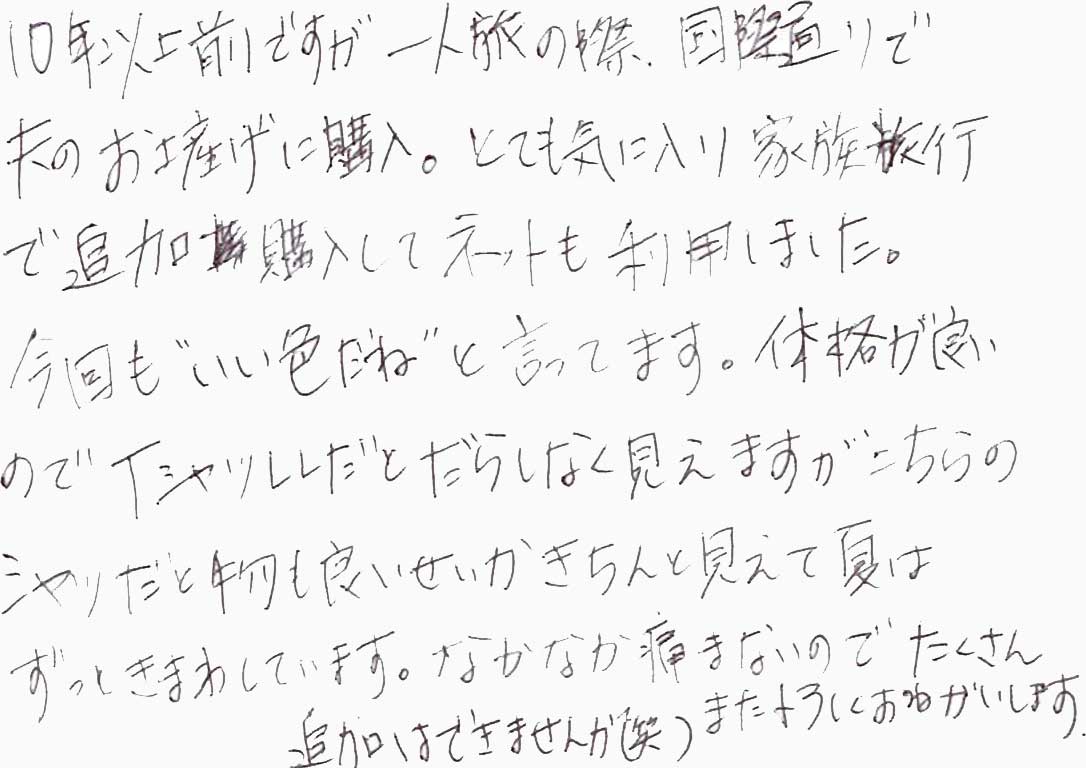 10年以上前ですが一人旅の際、国際通りで
夫のお土産げに購入。とても気に入り家族旅行
で追加購入してネットも利用しました。
今回も"いい色だね"と言ってます。体格が良い
のでTシャツLLだとだらしなく見えますがこちらの
シャツだと物も良いせいかきちんと見えて夏は
ずっときまわしています。なかなか痛まないのでたくさん
追加はできませんが(笑)またよろしくおねがいします.